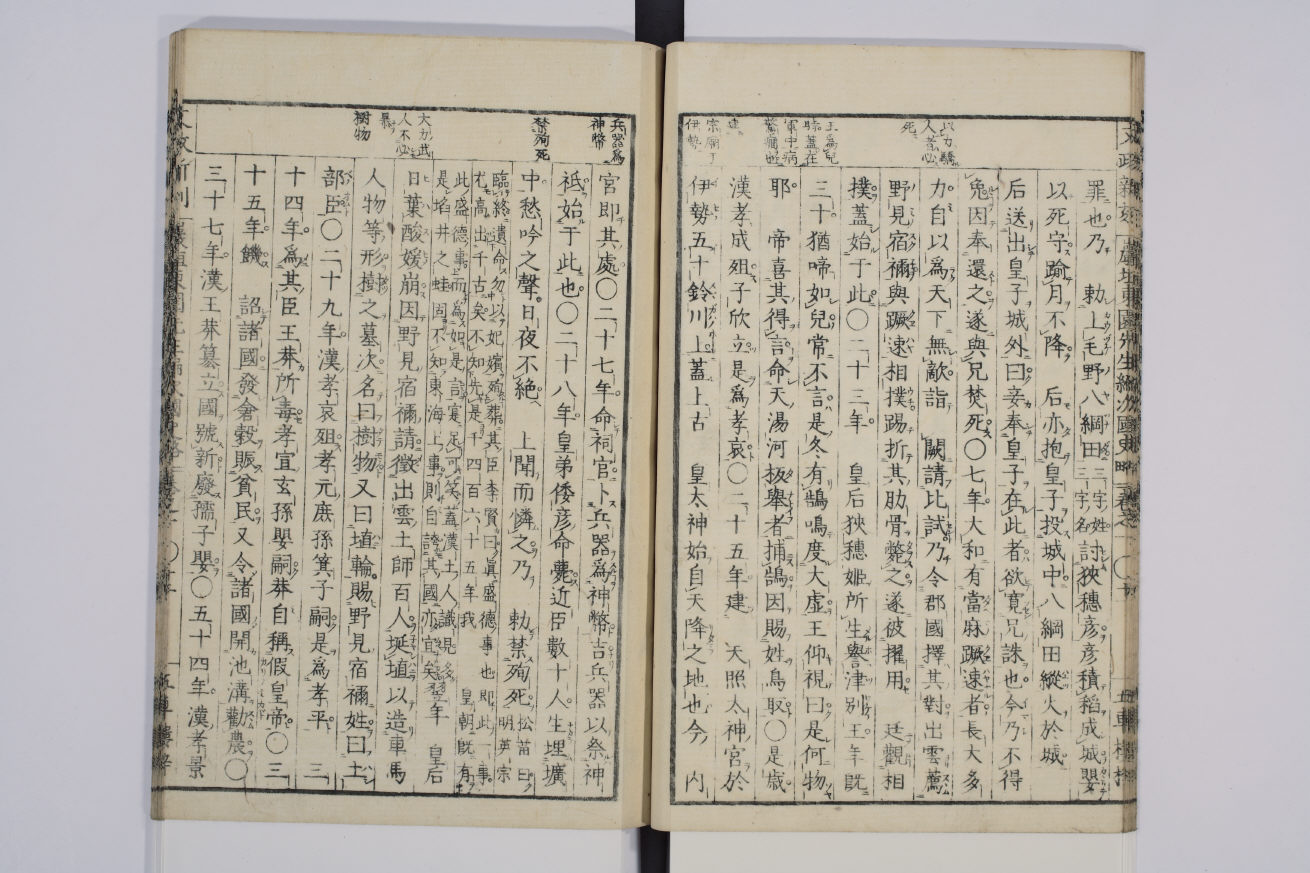 罪也乃 勅上毛野八綱田三字姓三字名討狹穗彦彦積稻成城嬰
以死守踰月不降 后亦抱皇子投城中八綱田縱火於城
后送出皇子城外曰妾奉皇子在此者欲寛兄誅也今乃不得
免因奉還之遂與兄焚死〇七年大和有當麻蹶速者長大多
力自以爲天下無敵詣 闕請比試乃令郡國擇其對出雲薦
野見宿禰與蹶速相撲踢折其肋骨斃之遂被擢用 廷觀相
撲蓋始于此〇二十三年 皇后狹穗姫所生譽津別王年既
三十猶啼如兒常不言是冬有鵠鳴度大虚王仰視曰是何物
耶 帝喜其得言命天湯河板擧者捕鵠因賜姓鳥取〇是歳
漢孝成殂子欣立是爲孝哀〇二十五年建 天照太神宮於
伊勢五十鈴川上蓋上古 皇太神始自天降之地也今 内
以力驕人者必死
王爲兒啼蓋在
宗廟于伊勢
宮即其處〇二十七年命祠官卜兵器爲神幣吉兵器以祭神
祇始于此也〇二十八年皇弟倭彦命薨近臣數十人生埋壙
中愁吟之聲日夜不絶 上聞而憐之乃 勅禁殉死松苗曰明英宗
臨終遺命勿以妃嬪殉葬其臣李賢曰眞盛德事也即此一事
尤高出千古矣不知先是千四百六十五年我 皇朝既有
此盛德事而爲如是言寔足可笑蓋漢土人識見多
是埳井之蛙固不知東海上事則自誇其國亦宜矣翌年 皇后
日葉酸媛崩因野見宿禰請徴出雲土師百人埏埴以造車馬
人物等形樹之墓次名曰樹物又曰埴輪賜野見宿禰姓曰土
部臣〇二十九年漢孝哀殂孝元庶孫箕子嗣是爲孝平 三
十四年爲其臣王莽所毒孝宣玄孫嬰嗣莽自稱假皇帝〇三
十五年饑 詔諸國發倉穀賑貧民又令諸國開池溝勸農〇
三十七年漢王莽簒立國號新廢孺子嬰〇五十四年漢孝景
兵器爲神幣
禁殉死
大力武人不必暴
樹物